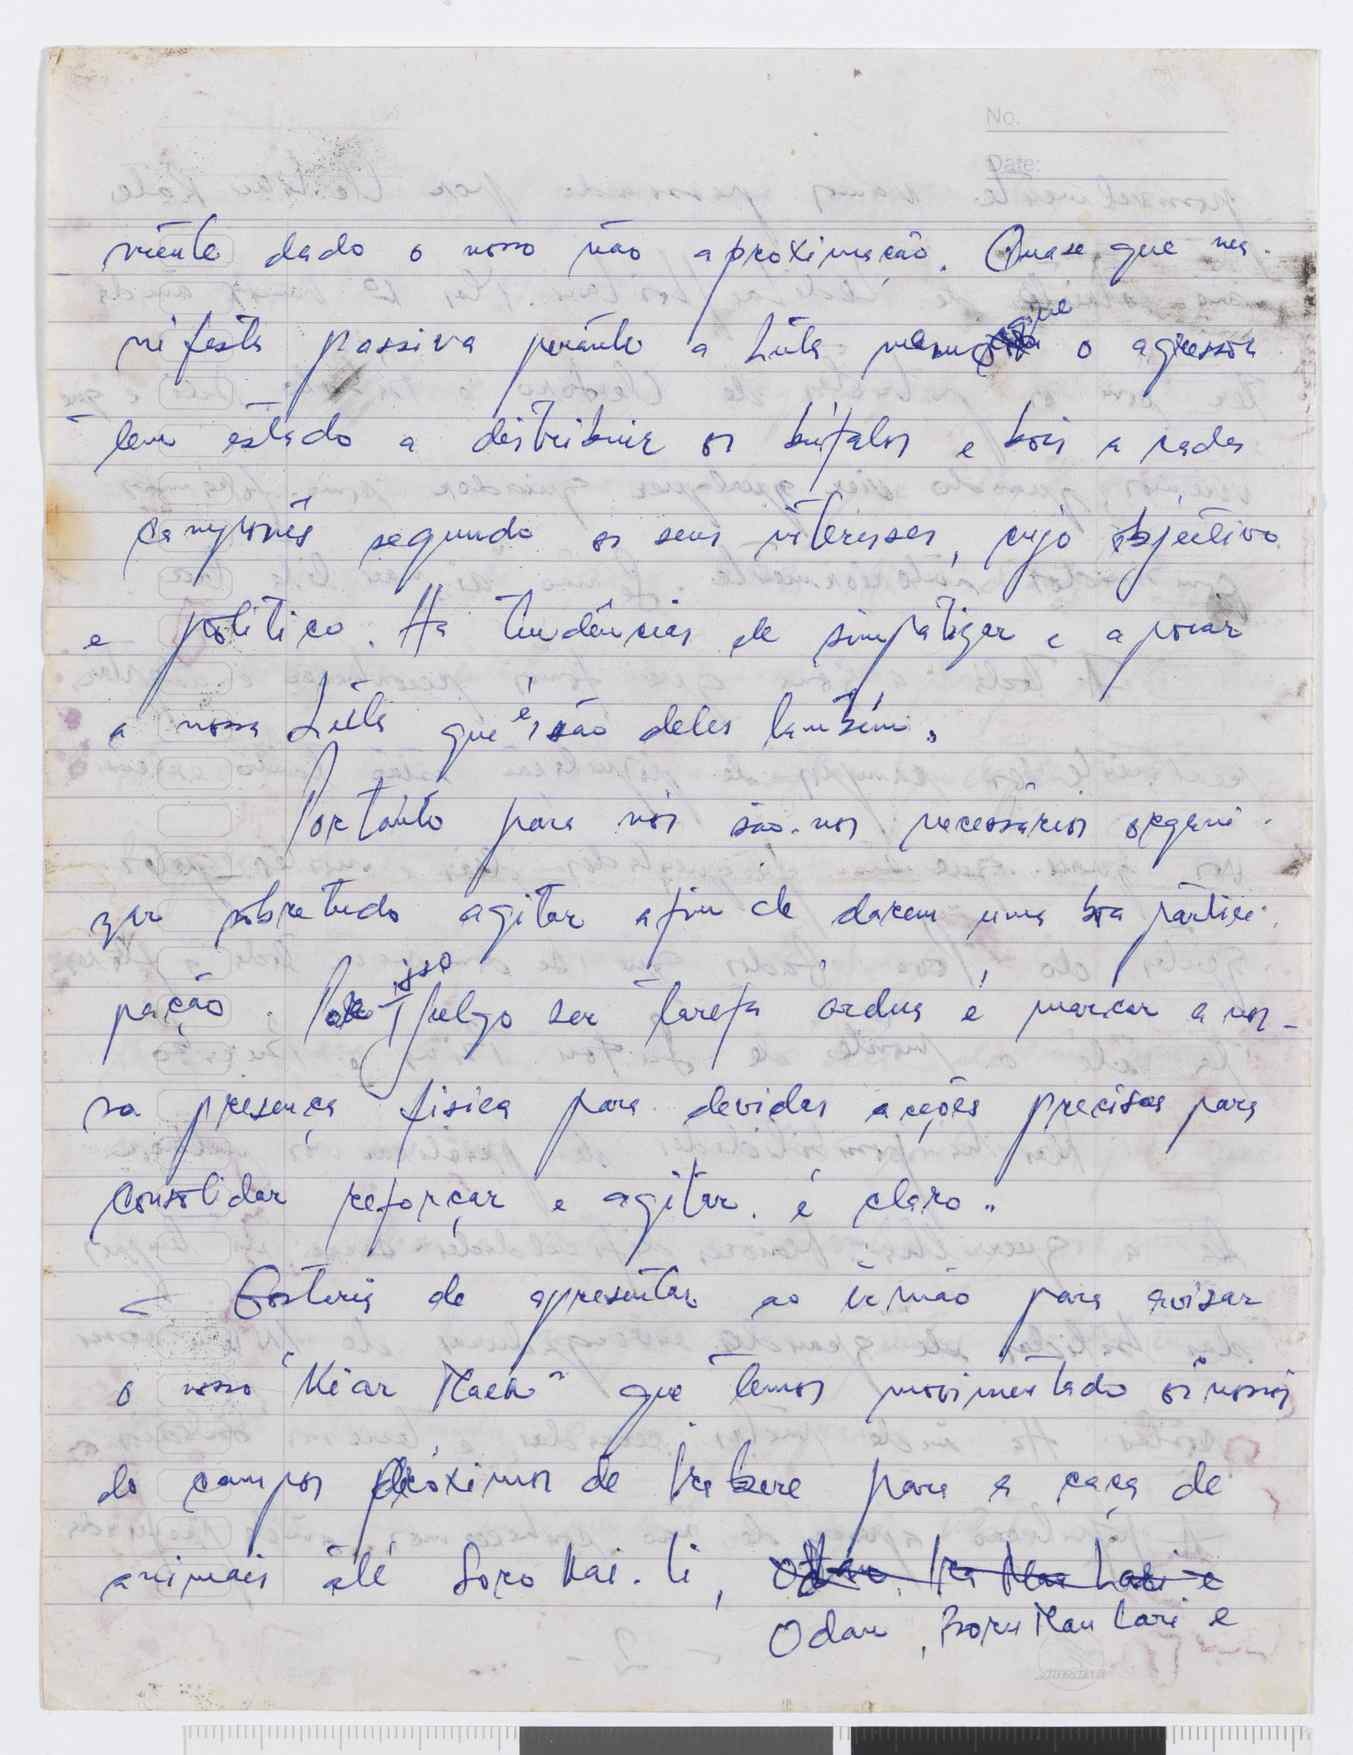 No.
Date:
mente dado o nosso não aproximação. Quase que ma-
nifesta passiva perante a Luta mesmo que o agressor
tem estado a distribuir os búfalos e bois a cada
camponês segundo os seus interesses, cujo objectivo
e político. Ha tendências de simpatizar e apoiar
a nossa Luta que é são deles também.
Portanto para nós são-nos necessários organi-
zar sobretudo agitar afim de darem uma boa partici-
pação. Por isso julgo ser tarefa ardua é marcar a nos-
sa presença fisica para devidas acções precisas para
consolidar reforçar e agitar. é claro..
Gostaria de apresentar ao irmão para avisar
o nosso "Kiar Maek" que temos movimentado os nossos
do campos próximos de Irabere para a caça de
animais até Loro Kai-li,
Odan, Boru Mau Lari e